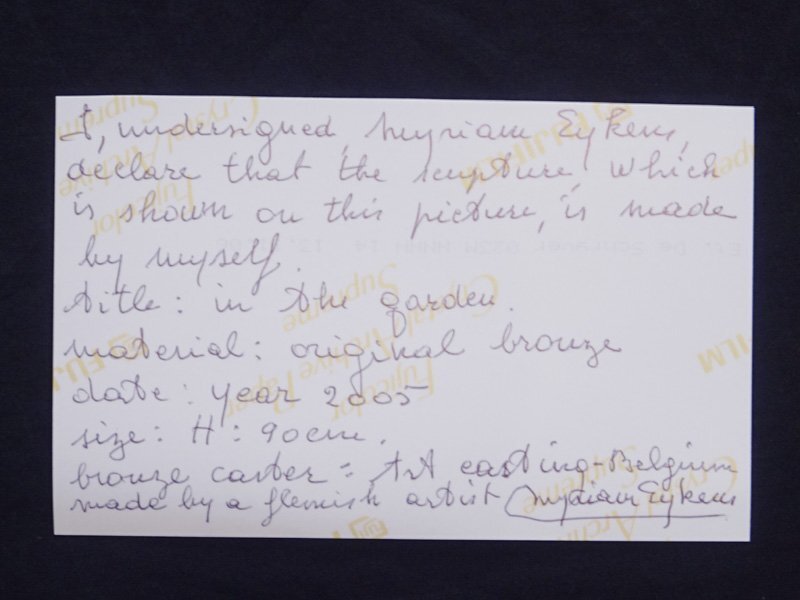 I, undersigned, Myriam Eykens,
declare that the sculpture, which
is shown on this picture, is made
by myself.
title: in the garden.
material: original bronze
date: year 2005
size: H: 90cm.
bronze caster = Art casting - Belgium
made by a flemish artist Myriam Eykens
Fujicolor
Crystal Archive Paper
Supreme
FUJIFILM